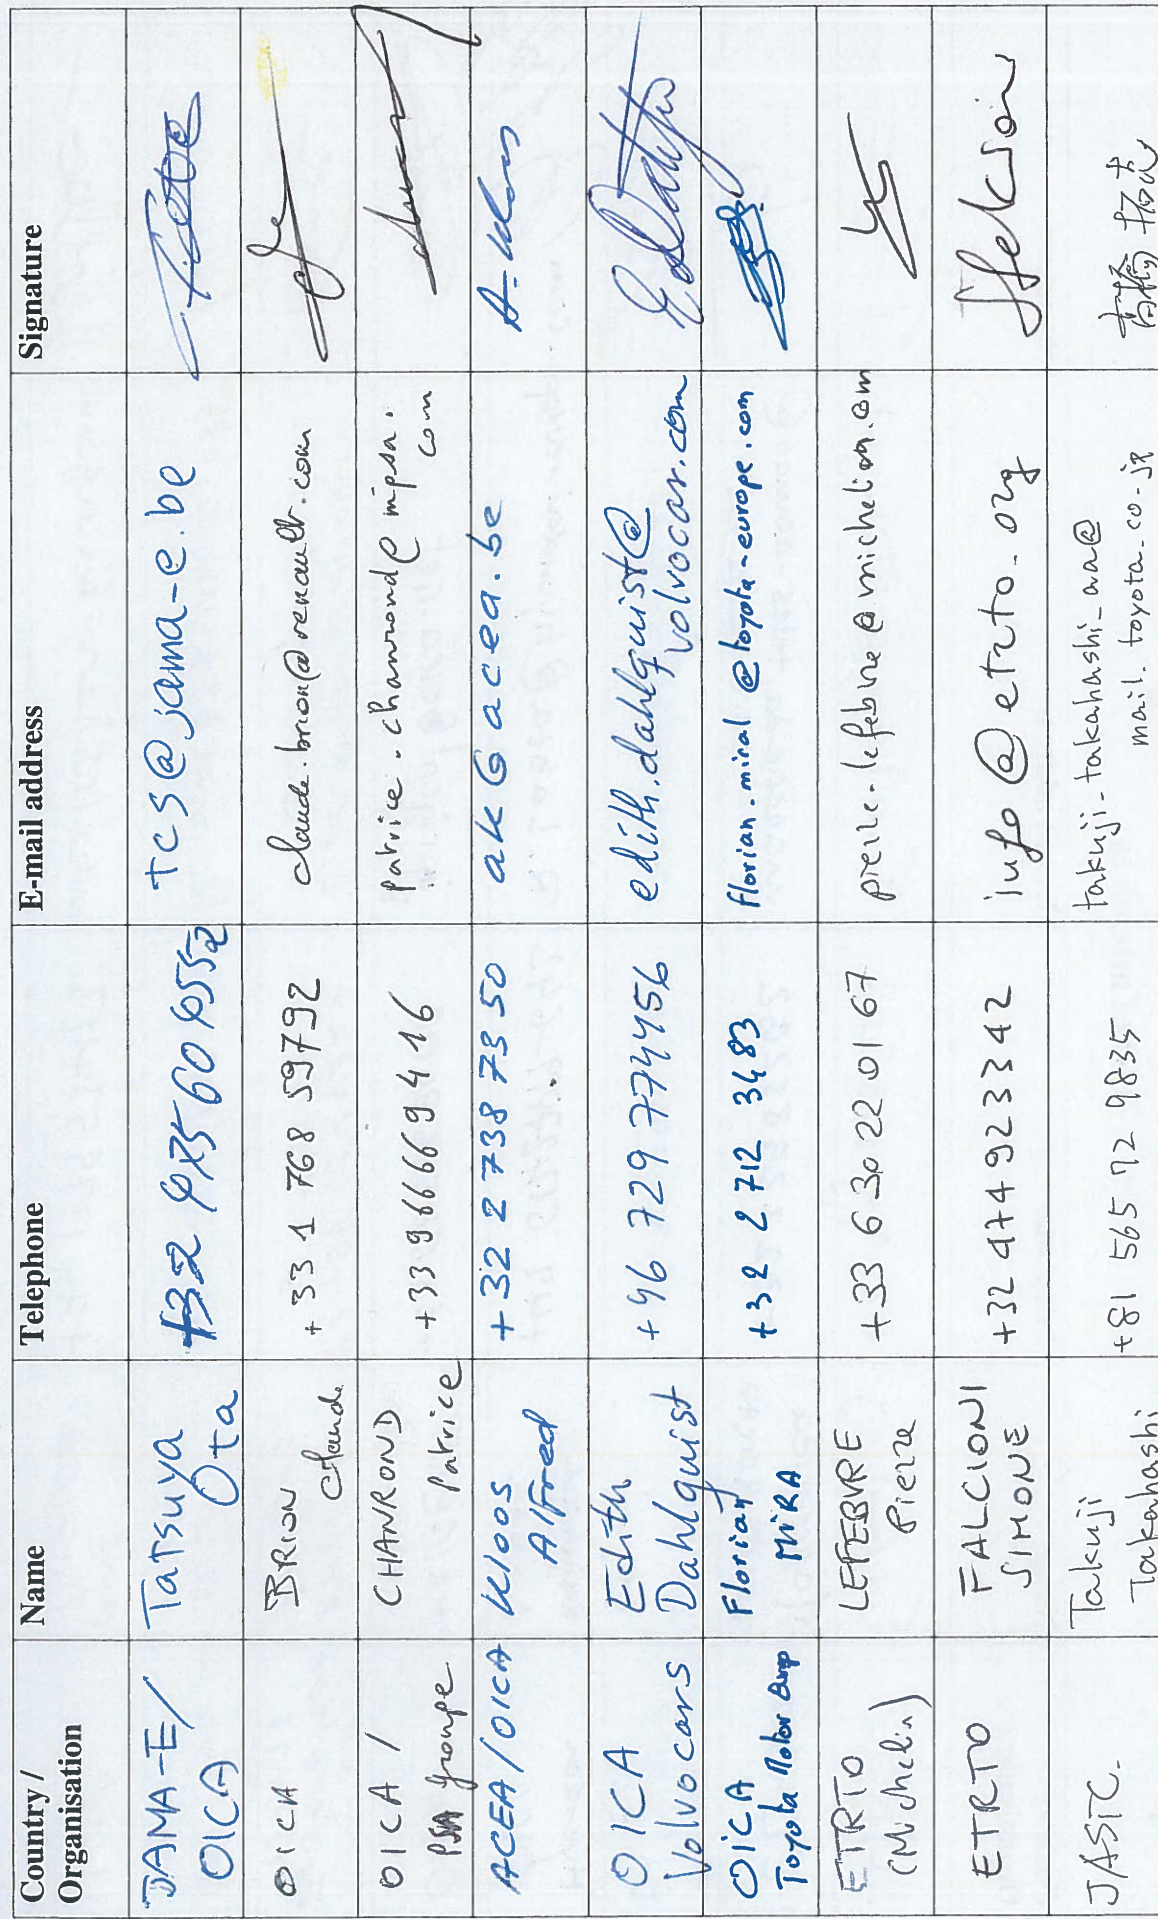 Country /
Organisation
Name
Telephone
E-mail address
Signature
JAMA-E/
OICA
Tatsuya
Ota
tcs@jama-e.be
OICA
BRION
Claude
+33 1 768 59792
claude.brion@renault.com
OICA /
PSA groupe
CHANROND
Patrice
+33 9 66 66 9 4 16
patrice.chanrond@mpsa.
com
ACEA/OICA
Kloos
Alfred
+32 2 738 73 50
ak@acea.be
A-Kloos
OICA
Volvocars
Edith
Dahlquist
+46 729 774456
edith.dahlquist@
volvocar.com
OICA
Toyota Motor Europ
Florian
MIRA
+32 2 712 3483
florian.miral@toyota-europe.com
ETRTO
(Michelin)
LEFEBVRE
Pierre
+33 6 30 22 01 67
pierre.lefebvre@michelin.com
ETRTO
FALCIONI
SIMONE
+32 474 923342
info@etrto.org
JASIC.
Takuji
Takahashi
+81 565 72 9835
takuji_takahashi_aa@
mail.toyota.co.jp
高橋 拓志